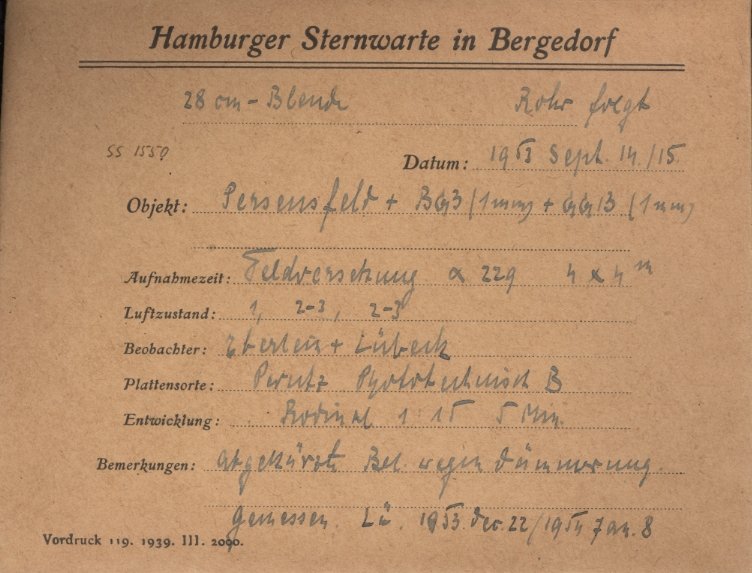 Hamburger Sternwarte in Bergedorf
28 cm - Blende Rohr folgt
SS 1550
Datum: 1953 Sept. 14./15.
Objekt: Perseusfeld + BG3 (1mm) + GG13 (1mm)
Aufnahmezeit: Feldversetzung α 229 4 x 4 m
Luftzustand: 1, 2-3, 2-3
Beobachter: + Lübeck
Plattensorte: Perutz Phototechnisch B
Entwicklung: Rodinal 1:15 5 Min.
Bemerkungen: abgekürzte Bel. wegen Dämmerung.
Gemessen. Lü. 1953 Dez. 22/1954 Jan. 8
Vordruck 119. 1939. III. 2000.